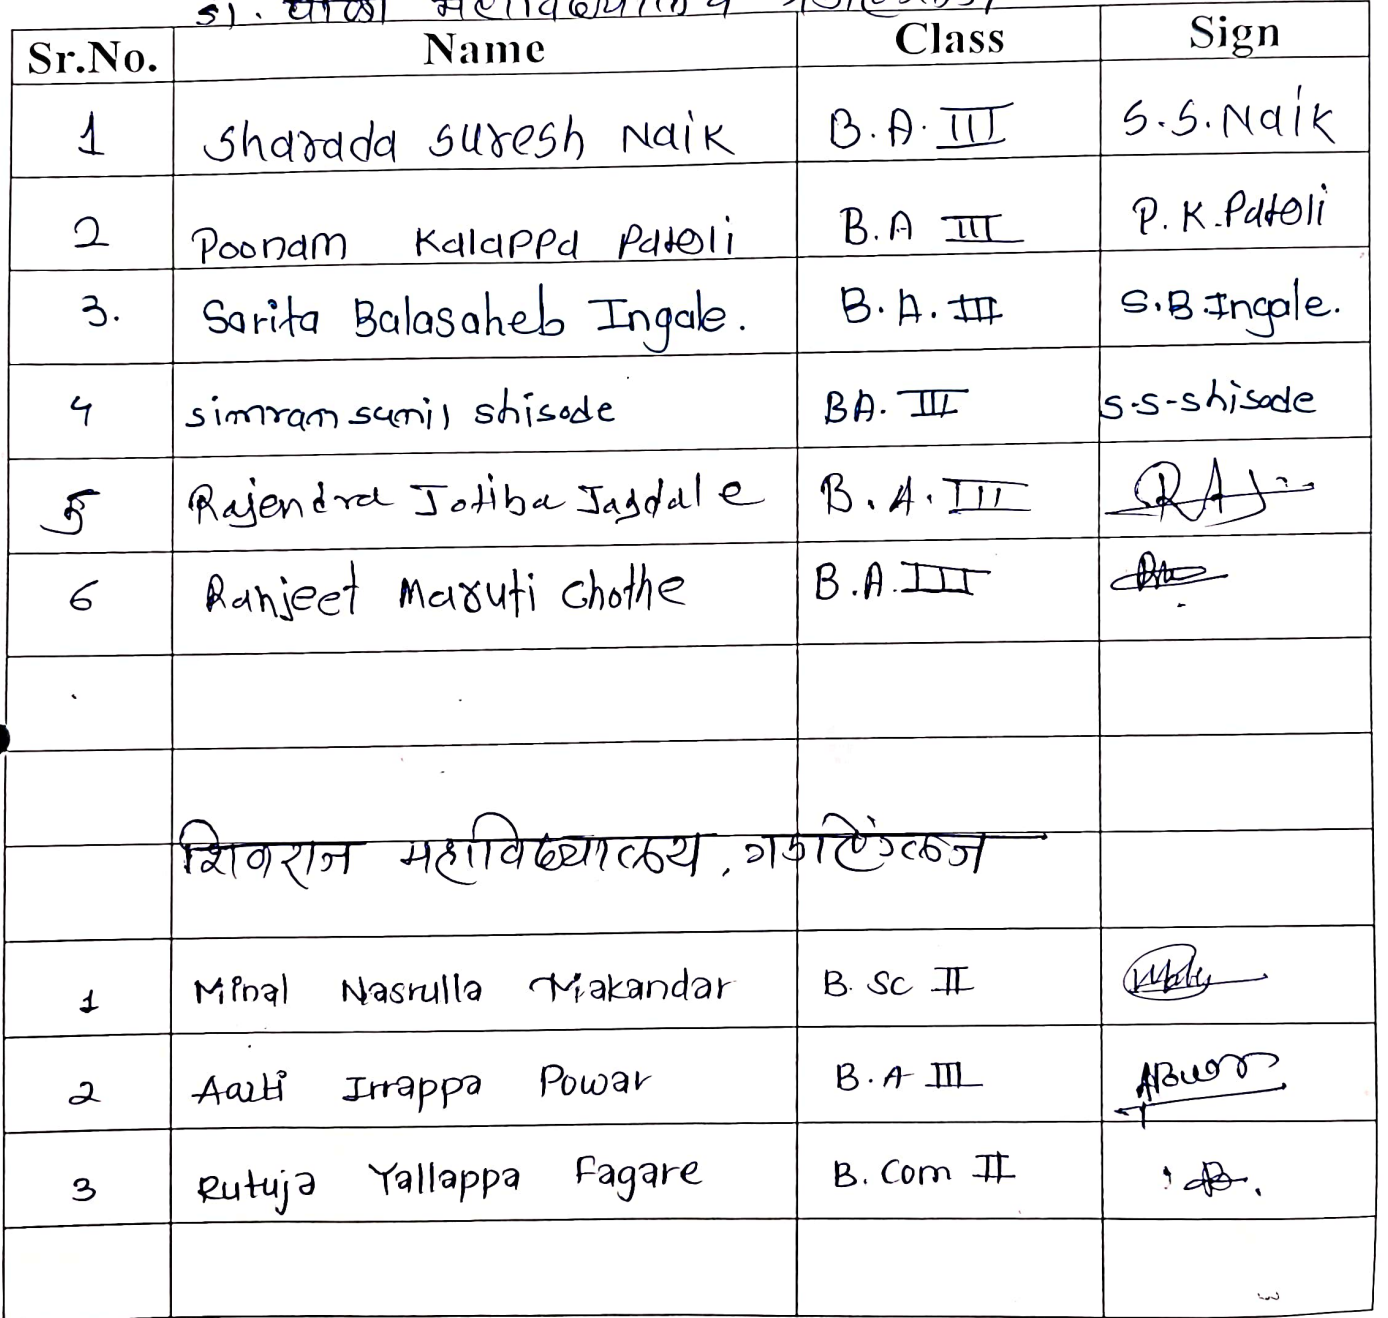 डॉ. घाळी महाविद्यालय
Sr.No. Name Class Sign
1 Sharada Suresh Naik B.A. III S.S.Naik
2 Poonam Kalappa Patoli B.A III P.K.Patoli
3. Sarita Balasaheb Ingale. B.A. III S.B.Ingale.
4 simram sunil shisode BA. III s.s-shisode
5 Rajendra Jotiba Jagdale B.A. III RAJ
6 Ranjeet Maruti Chothe B.A. III
शिवराज महाविद्यालय, गडहिंग्लज
1 Minal Nasrulla Makandar B. Sc II
2 Aarti Irrappa Powar B.A III
3 Rutuja Yallappa Fagare B. Com II